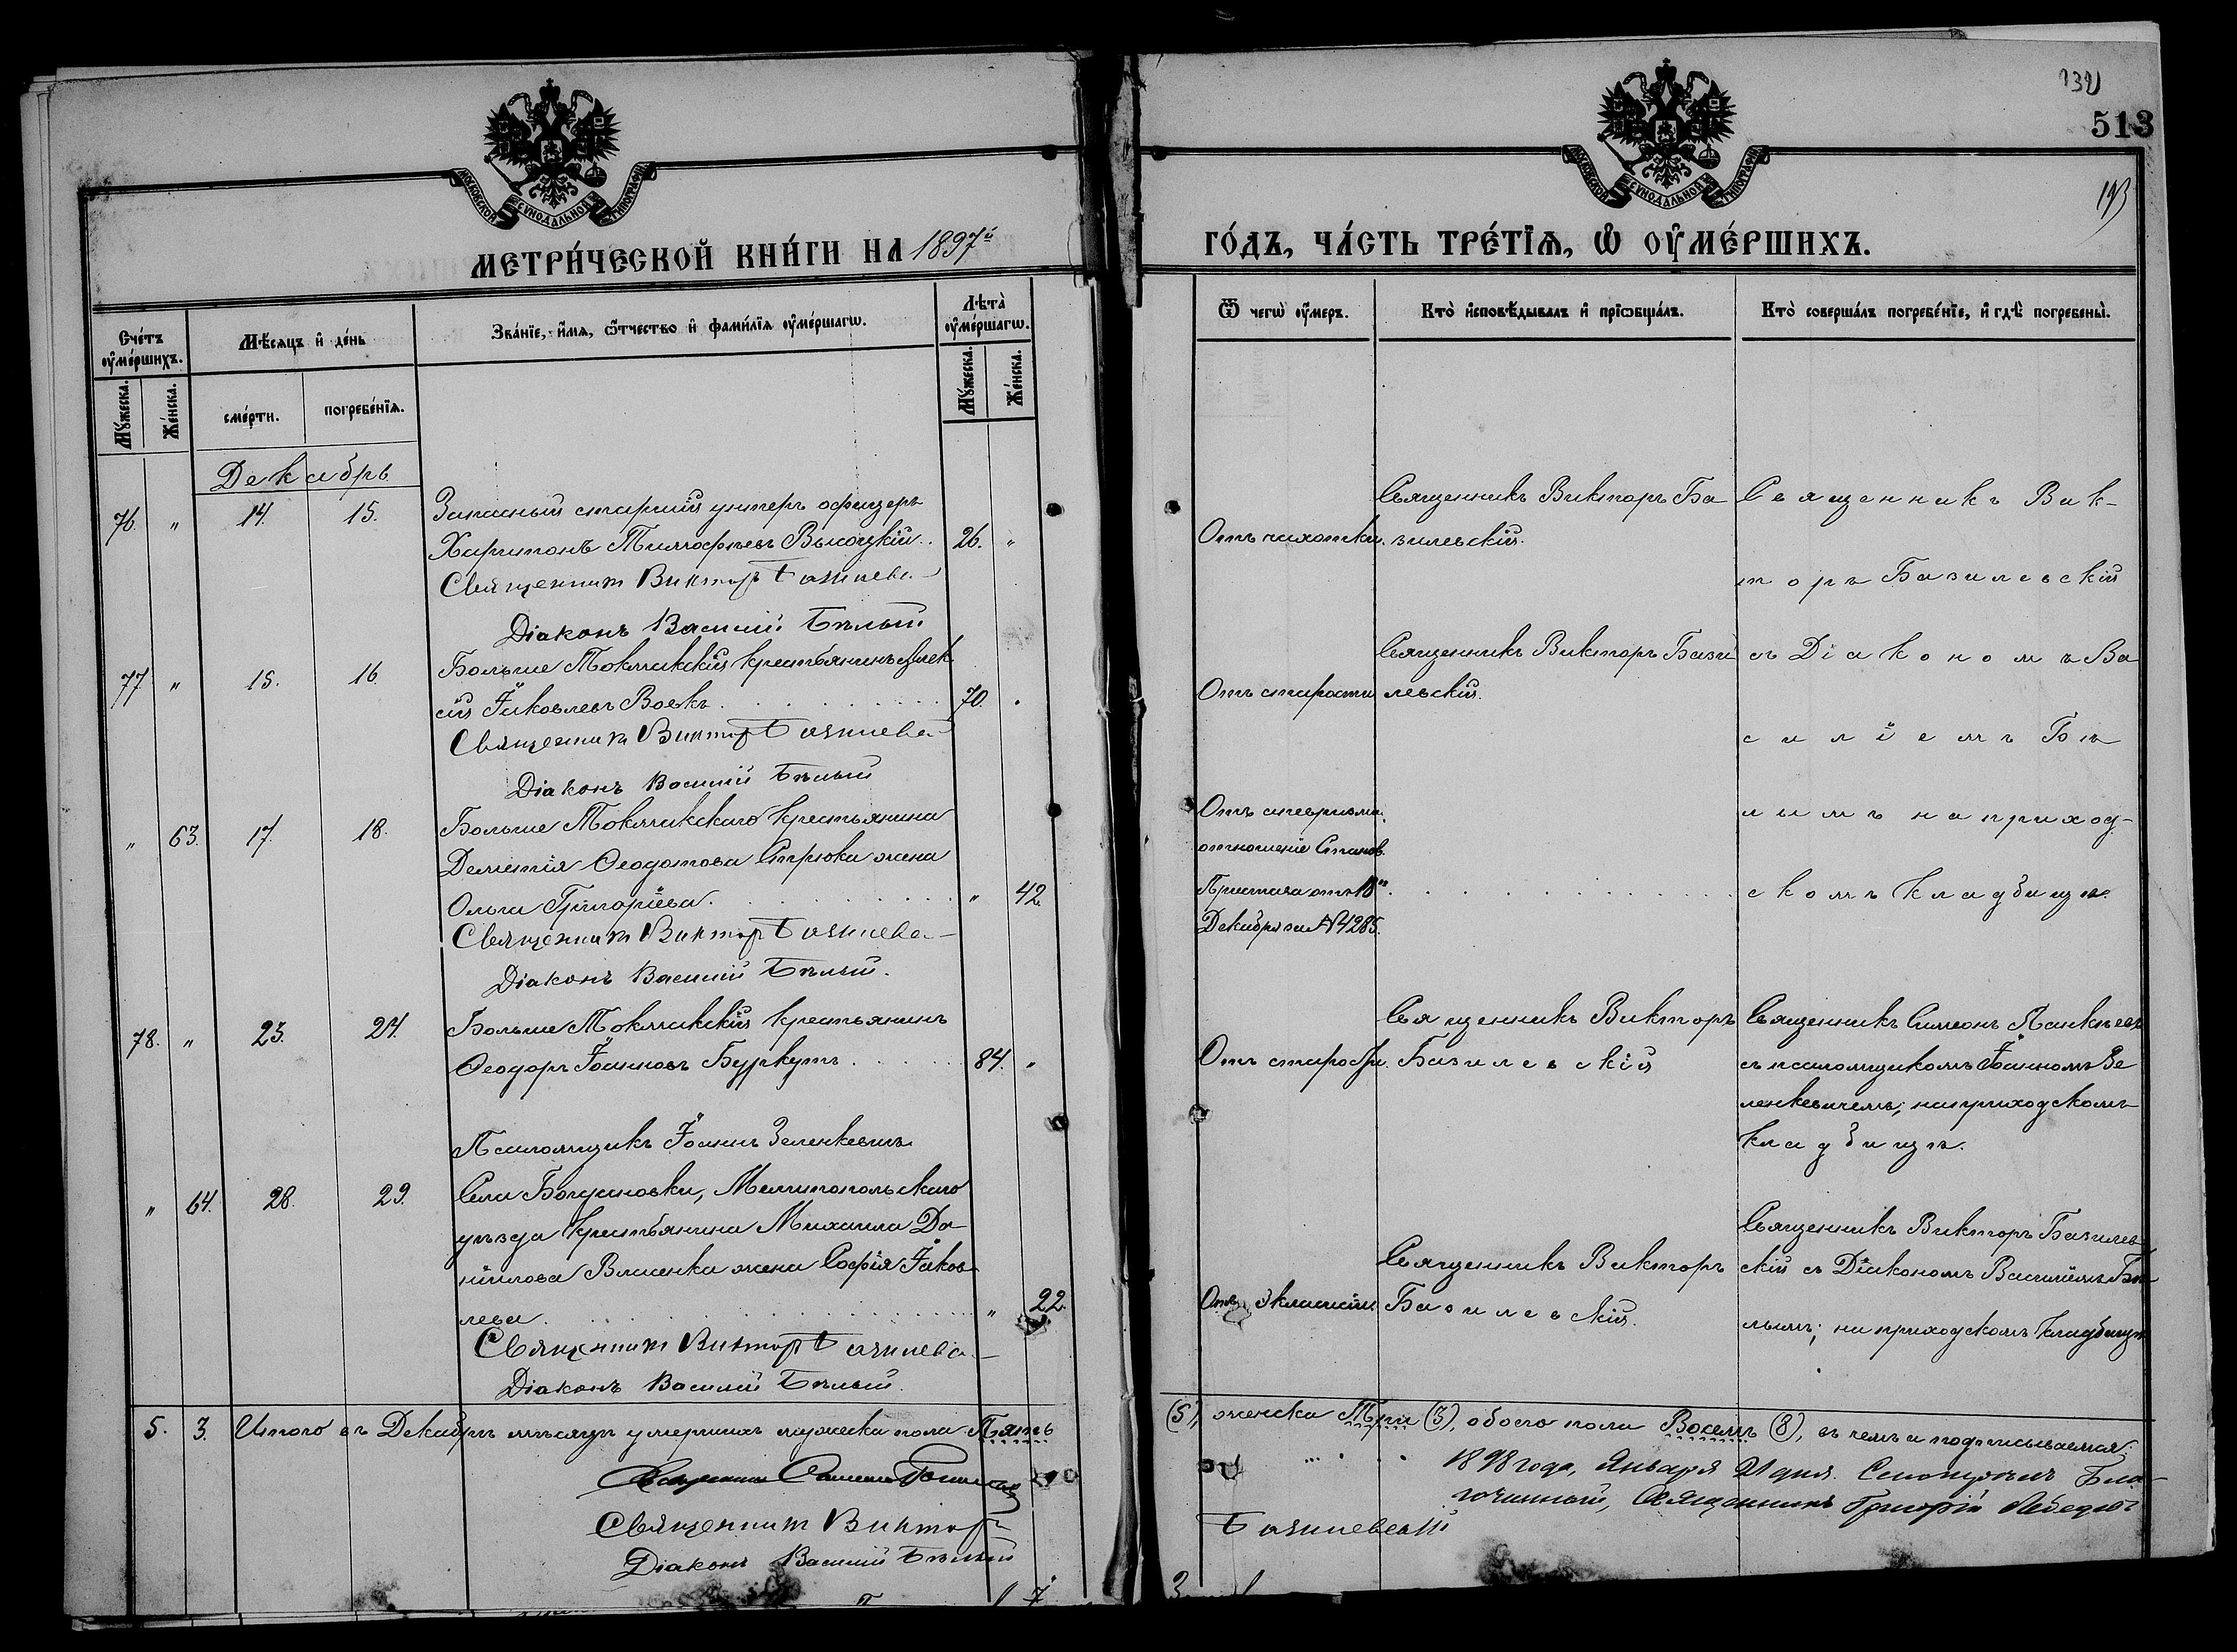 132
513
МОСКОВСКОЙ СУНОДАЛЬНОЙ ТИПОГРАФІИ
МОСКОВСКОЙ СУНОДАЛЬНОЙ ТИПОГРАФІИ
193
МЕТРИ́ЧЕСКОЙ КНИ́ГИ НА 1897й
ГО́ДЪ, ЧА́СТЬ ТРЕ́ТІѦ, Ѡ ОУМЕ́РШИХЪ.
Сче́тъ оуме́ршихъ.
Мꙋ́жеска.
Же́нска.
Мѣ́сяцъ и де́нь
сме́рти.
погребе́нїѧ.
Зва́нїе, и́мѧ, ѻ́тчество и фами́лїѧ оуме́ршагѡ.
Лѣта̀ оуме́ршагѡ.
Мꙋ́жеска.
Же́нска.
Ѿ чегѡ̀ оу́меръ.
Кто̀ исповѣ́дывалъ и прїѡбща́лъ.
Кто̀ соверша́лъ погребе́нїе, и гдѣ̀ погребены̀.
Декабрь
76. " 14. 15. Запасный старшій унтеръ офицеръ
Харитонъ Тимофеевъ Высоцкій.. 26. "
Священник Виктор Базилевс
Діаконъ Василій Бѣлый
Отъ чахотки.
Священникъ Викторъ Ба
зилевскій.
Священникъ Вик-
торъ Базилевскій
съ Діакономъ Ва
силіемъ Бѣ
лымъ на приход-
скомъ кладбищѣ.
77 " 15. 16. Больше Токмакскій крестьянинъ Алек
сій Іаковлевъ Вовкъ. 70. "
Священник Виктор Базилевс
Діаконъ Василій Бѣлый
Отъ старости
Священникъ Викторъ Бази
левскій.
" 63. 17. 18. Больше Токмакскаго крестьянина
Дементія Ѳеодотова Стрюка жена
Ольга Григоріева. " 42.
Священник Виктор Базилевс
Діаконъ Василій Бѣлый.
отношеніе Станов.
Пристава отъ 18го
Декабря за №4285.
78. " 23. 24. Больше Токмакскій крестьянинъ
Ѳеодоръ Іоанновъ Буркутъ. 84. "
Псаломщикъ Іоаннъ Зеленкевичъ
Отъ старости.
Священникъ Викторъ
Базилевскій
Священникъ Симеонъ
съ псаломщикомъ Іоанномъ Зе
ленкевичемъ; на приходскомъ
кладбищѣ.
" 64. 28. 29. Села Богдановки, Мелитопольскаго
уѣзда крестьянина Михаила Да-
ніилова Власенка жена Софія Іаков
лева. " 22.
Священник Виктор Базилевс
Діаконъ Василій Бѣлый.
Отъ Экламсіи.
Священникъ Викторъ
Базилевскій.
Священникъ Викторъ Базилев
скій съ Діакономъ Василіемъ Бѣ
лымъ; на приходскомъ кладбищѣ
5. 3. Итого въ Декабрѣ мѣсяцѣ умершихъ мужеска пола Пять
(5), женска Три (3), обоего пола Восемь (8), въ чемъ и подписываемся:
Священник Виктор
Базилевскій
Діаконъ Василій Бѣлый
1898 года, Января 21 дня. Бла-
гочинный, Священникъ Григорій